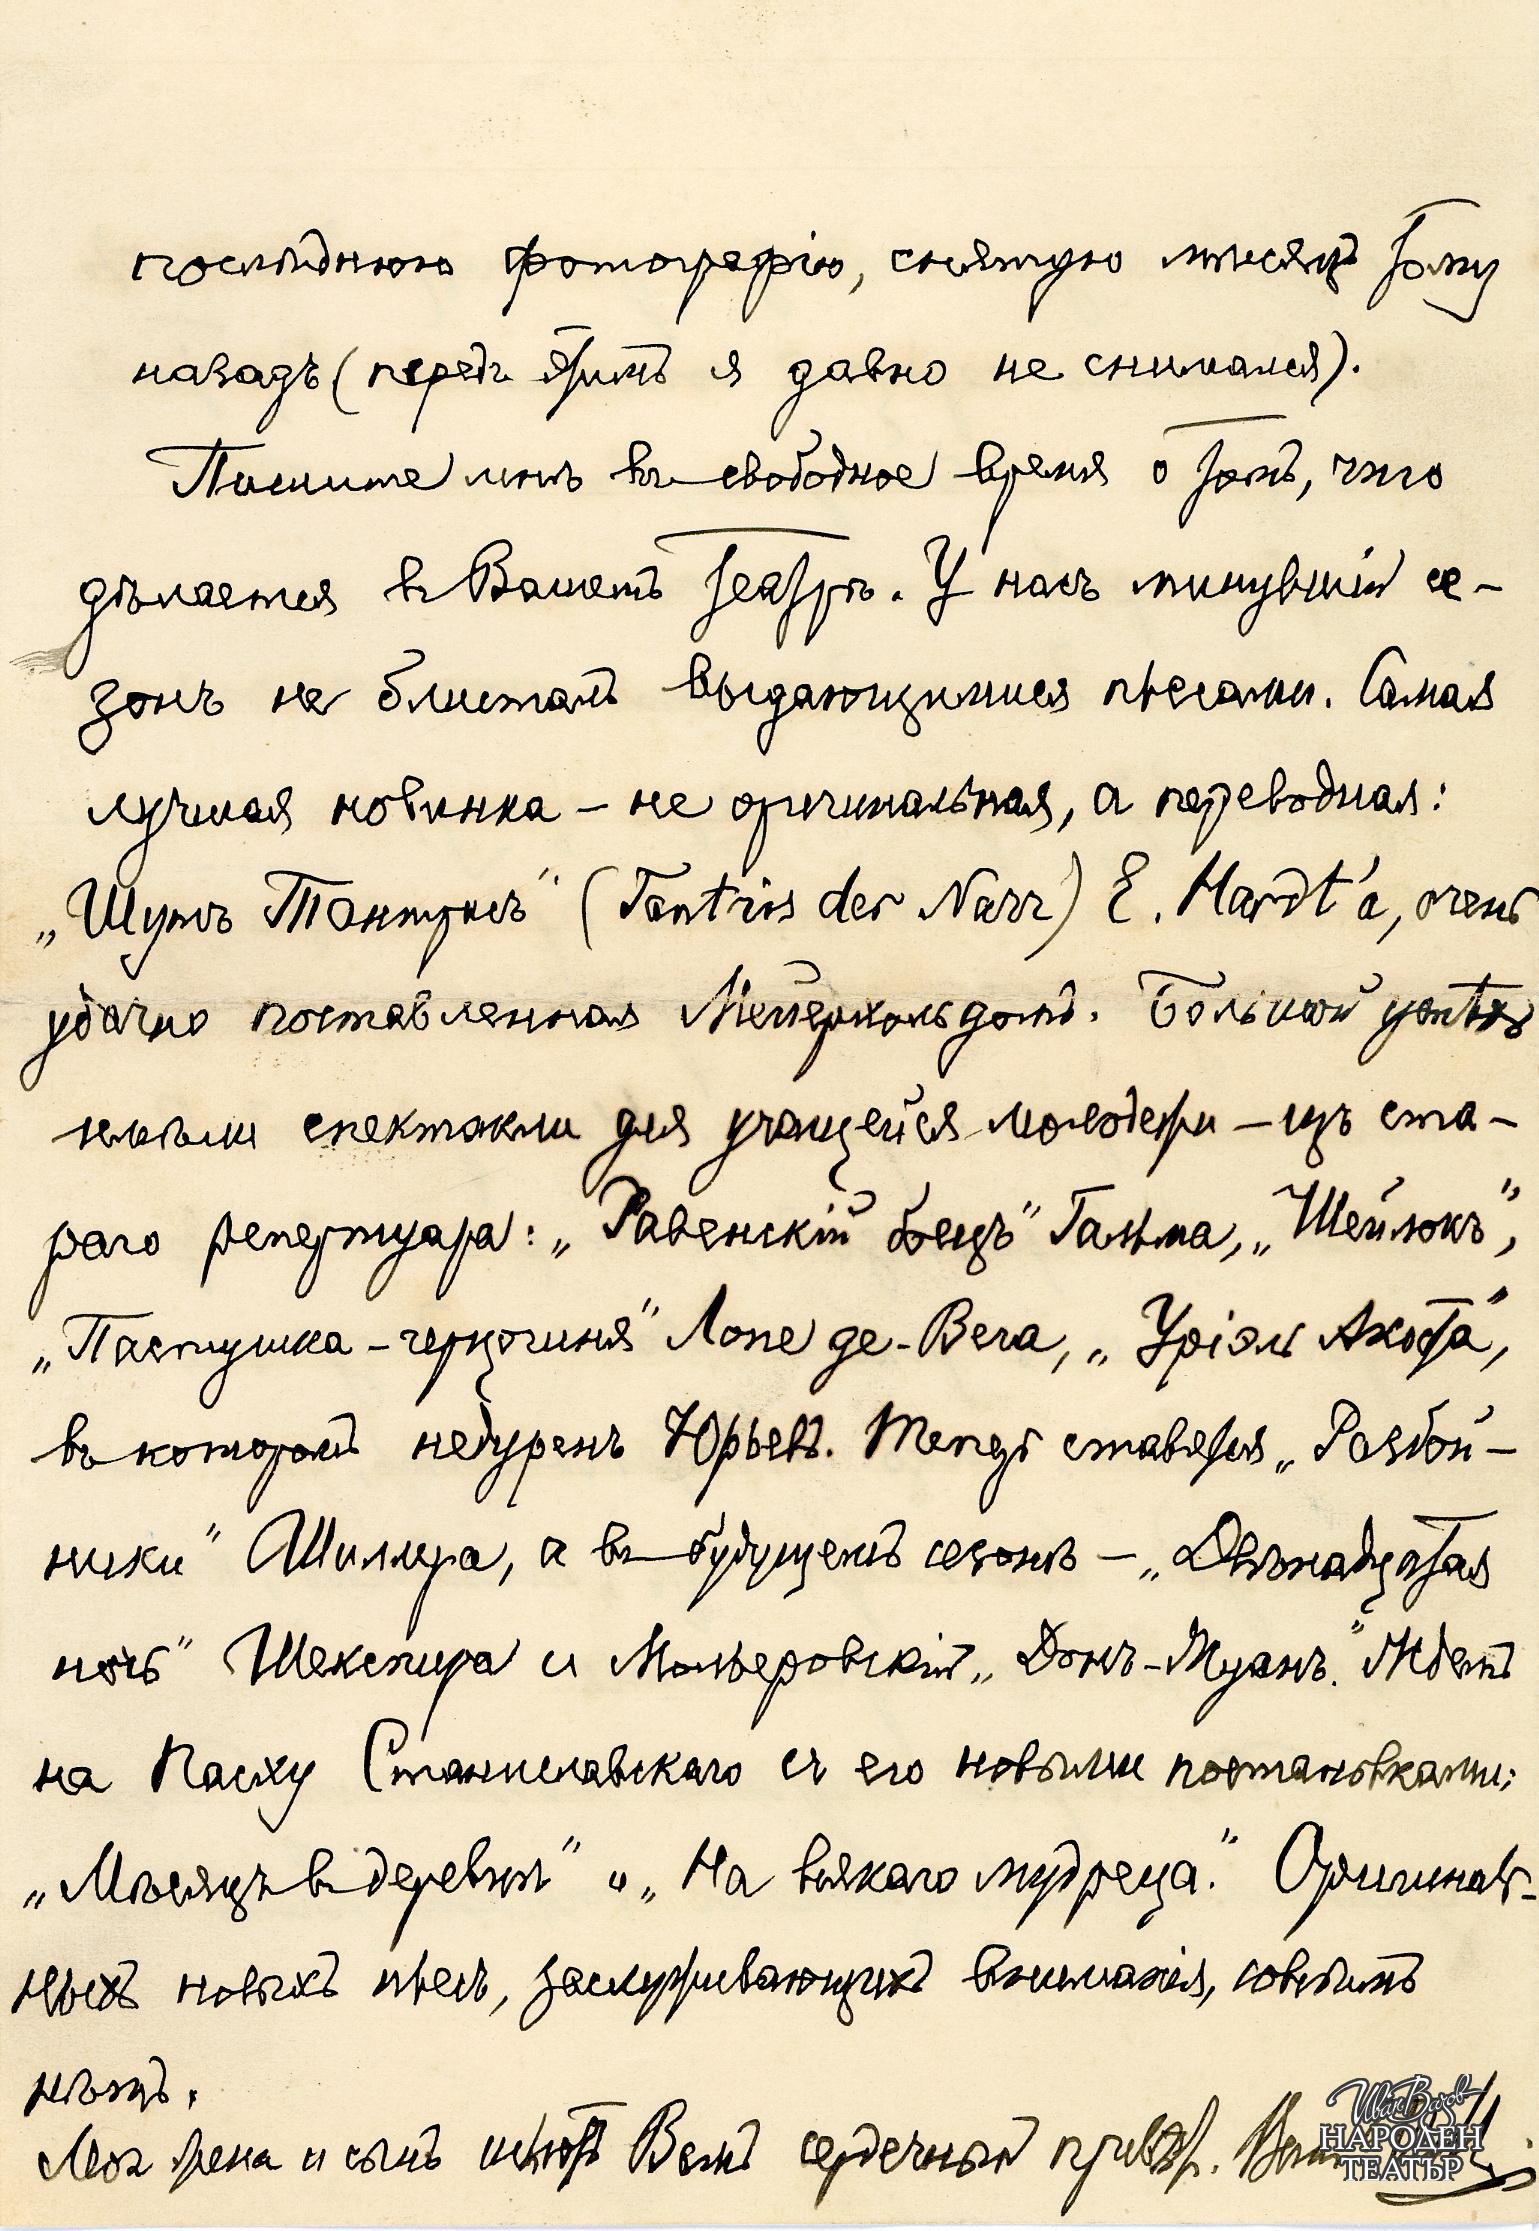 послѣднюю фотографію, снятую мѣсяцъ тому
назадъ (передъ этимъ я давно не снимался).
Пишите мнѣ въ свободное время о томъ, что
дѣлается въ Вашемъ театрѣ. У насъ минувшій се-
зонъ не блисталъ выдающимися пьесами. Самая
лучшая новинка – не оригинальная, а переводная:
„Шутъ Тантрисъ" (Tantris der Narr) E. Hardt'а, очень
удачно поставленная Мейерхольдомъ. Большой успѣхъ
имѣли спектакли для учащейся молодежи – изъ ста-
раго репертуара: „Равенскій боецъ" Гальма, „Шейлокъ",
„Пастушка-герцогиня" Лопе де-Вега, „Уріэль Акоста",
въ которомъ недуренъ Юрьевъ. Теперь ставятся „Разбой-
ники" Шиллера, а въ будущемъ сезонѣ – „Двѣнадцатая
ночь" Шекспира и Мольеровскій „Донъ-Жуанъ." Ждемъ
на Пасху Станиславскаго съ его новыми постановками:
„Мѣсяцъ въ деревнѣ" и „На всякаго мудреца." Оригиналь-
ныхъ новыхъ пьесъ, заслуживающихъ вниманія, совсѣмъ
нѣтъ.
Моя жена и сынъ шлютъ Вамъ сердечный привѣт.
Иван Вазов
НАРОДЕН
ТЕАТЪР